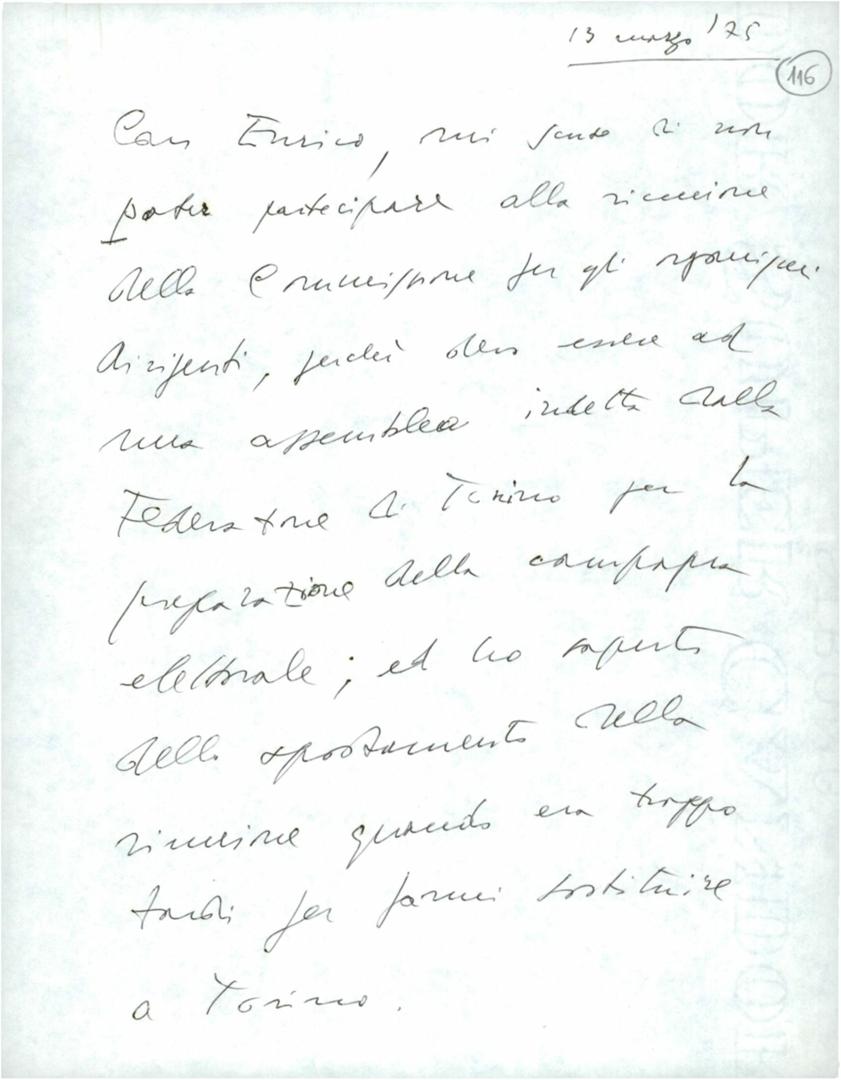 13 marzo '75
116
Caro Enrico, mi scuso di non
poter partecipare alla riunione
della Commissione per gli organismi
dirigenti, perché devo essere ad
una assemblea indetta dalla
Federazione di Torino per la
preparazione della campagna
elettorale; ed ho saputo
dello spostamento della
riunione quando era troppo
tardi per farmi sostituire
a Torino.